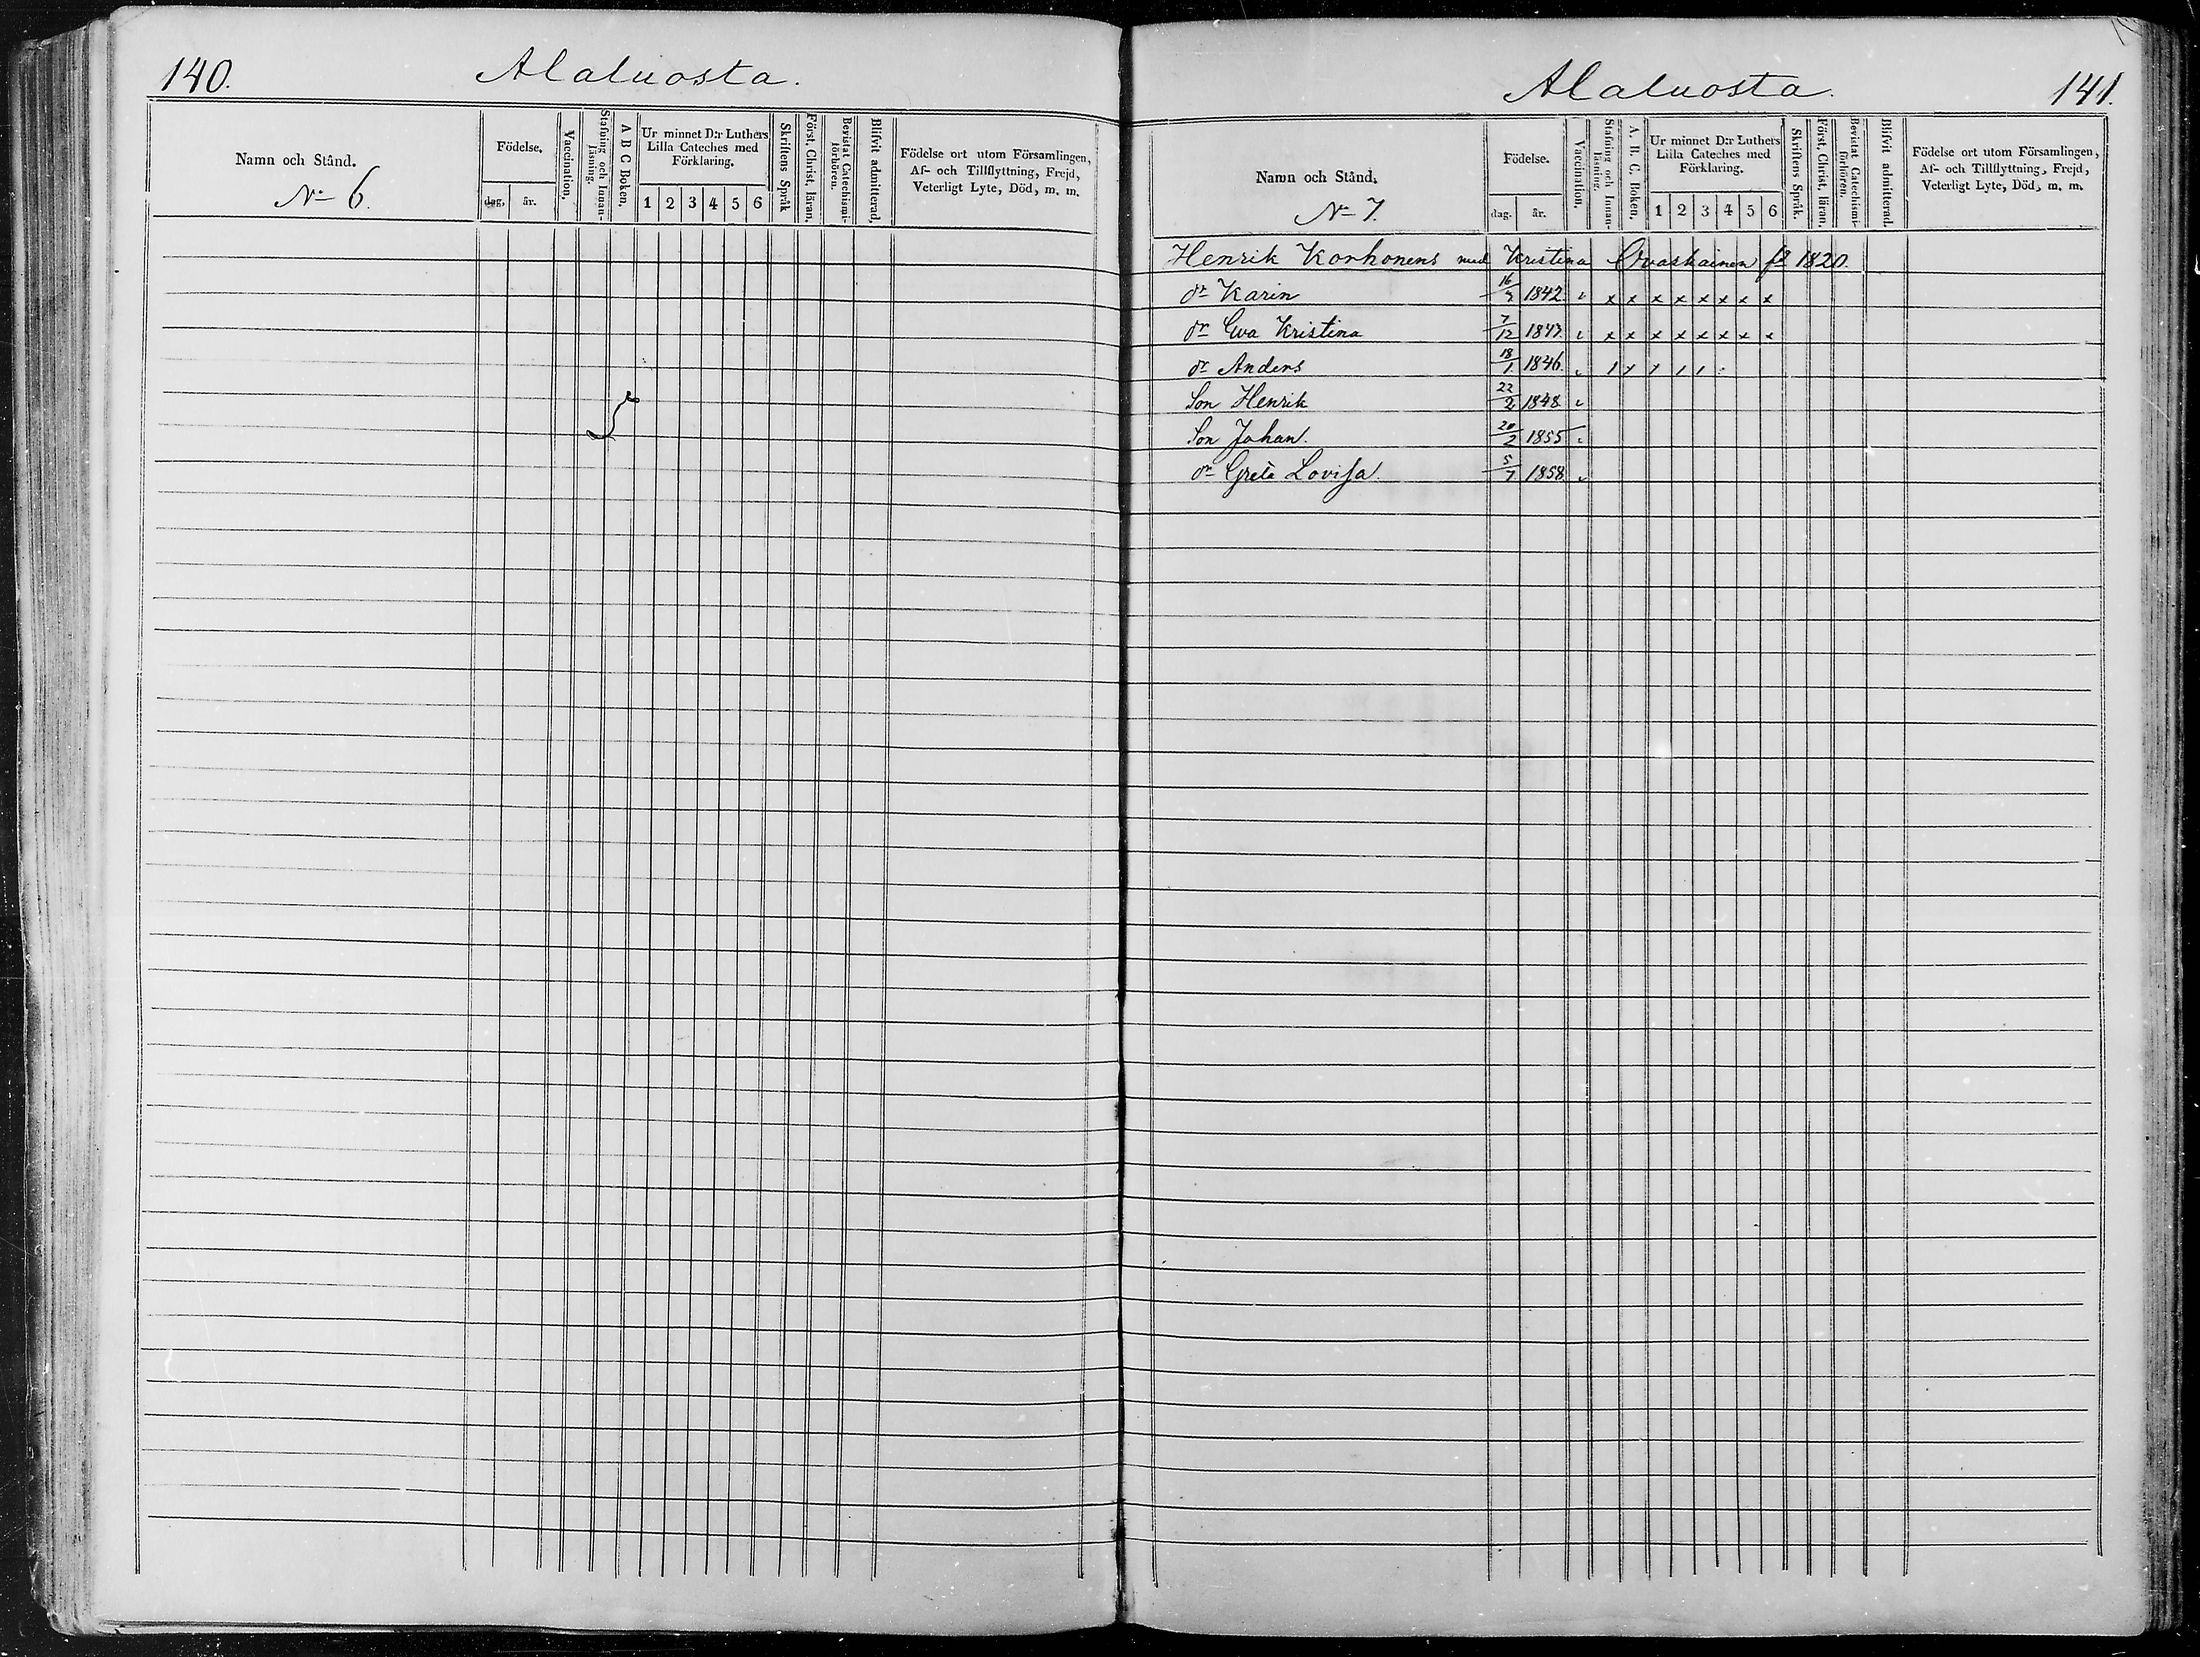 140. Alaluosta.
Namn och Stånd.
No 6.
Födelse.
dag. år.
Vaccination.
Stafning och Innan-
läsning.
A B C Boken.
Ur minnet D:r Luthers
Lilla Cateches med
Förklaring.
1 2 3 4 5 6
Skriftens Språk
Först. Christ. läran.
Bevistat Catechismi-
förhören.
Blifvit admitterad.
Födelse ort utom Församlingen,
Af- och Tillflyttning, Frejd,
Veterligt Lyte, Död, m. m.
Alaluosta. 141.
Namn och Stånd.
No 7.
Födelse.
dag. år.
Vaccination.
Stafning och Innan-
läsning.
A. B. C. Boken.
Ur minnet D:r Luthers
Lilla Cateches med
Förklaring.
1 2 3 4 5 6
Skriftens Språk.
Först. Christ. läran.
Bevistat Catechismi-
förhören.
Blifvit admitterad.
Födelse ort utom Församlingen,
Af- och Tillflyttning, Frejd,
Veterligt Lyte, Död, m. m.
Henrik Korhonens med Kristina Ovaskainen fd 1820.
dr Karin 1842 x x x x x x x x
dr Eva Kristina 7/12 1847. x x x x x x x x
dr Anders 18/1 1846.
Son Henrik 22/2 1848
Son Johan. 20/2 1855
dr Greta Lovisa. 5/7 1858